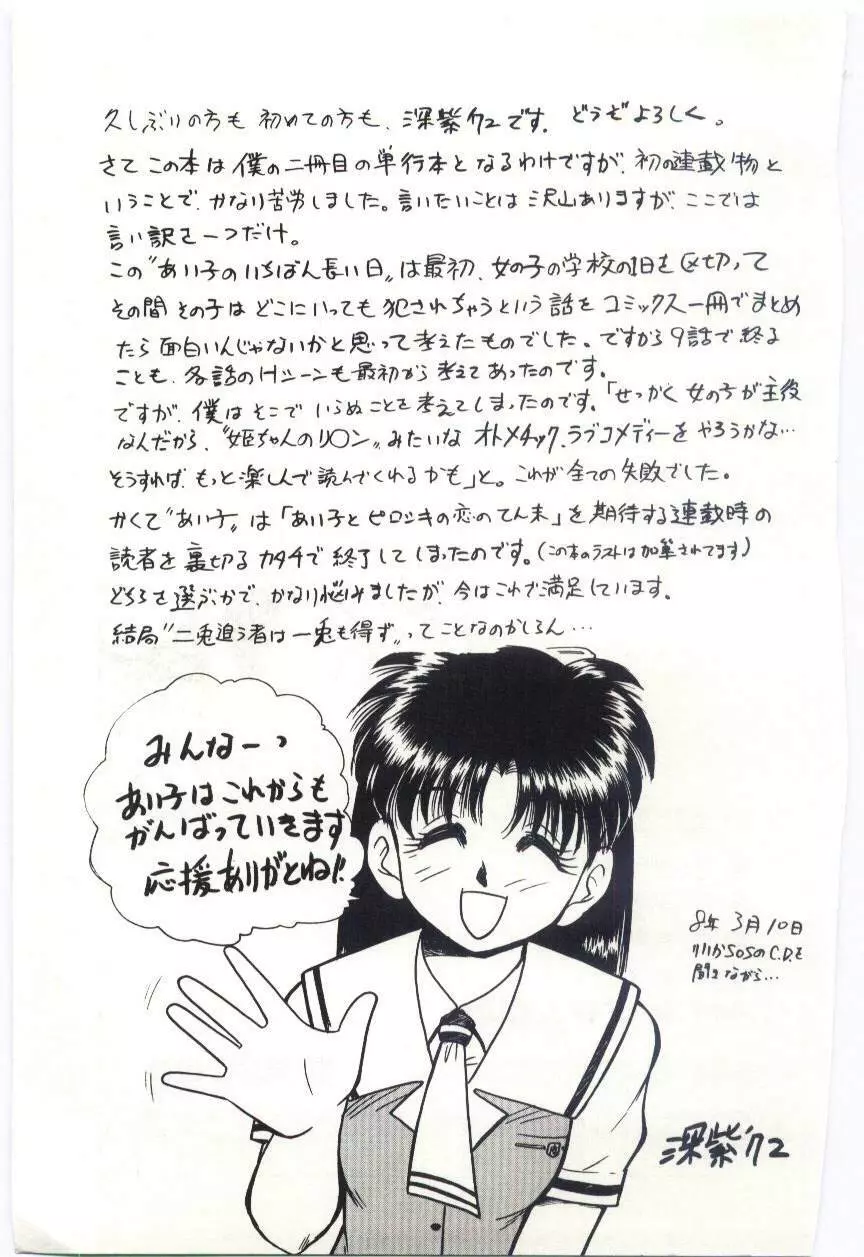 久しぶりの方も 初めての方も、深紫'72です。どうぞよろしく。
さて この本は 僕の二冊目の単行本となるわけですが、初の連載物と
いうことで、かなり苦労しました。言いたいことは 沢山ありますが、ここでは
言い訳を一つだけ。
この〝あい子のいちばん長い日〟は最初、女の子の学校の1日を区切って
その間 その子は どこにいっても 犯されちゃうという話を コミックス一冊でまとめ
たら 面白いんじゃないかと思って 考えたものでした。ですから9話で終る
ことも、各話のHシーンも最初から考えてあったのです。
ですが、僕は そこで いらぬことを考えてしまったのです。「せっかく 女の子が主役
なんだから、〝姫ちゃんのリ〇ン〟みたいな オトメチック、ラブコメディーを やろうかな…
そうすれば、もっと楽しんで読んでくれるかも」と。これが全ての失敗でした。
かくて〝あい子〟は「あい子とピロシキの恋のてん末」を期待する連載時の
読者を裏切るカタチで 終了してしまったのです。(この本のラストは加筆されてます)
どちらを選ぶかで、かなり悩みましたが、今はこれで満足しています。
結局〝二兎追う者は一兎も得ず〟ってことなのかしらん…
みんなーっ
あい子はこれからも
がんばっていきます
応援ありがとね!!
8年 3月10日
リリカSOSのC.D.を
聞きながら…
深紫'72